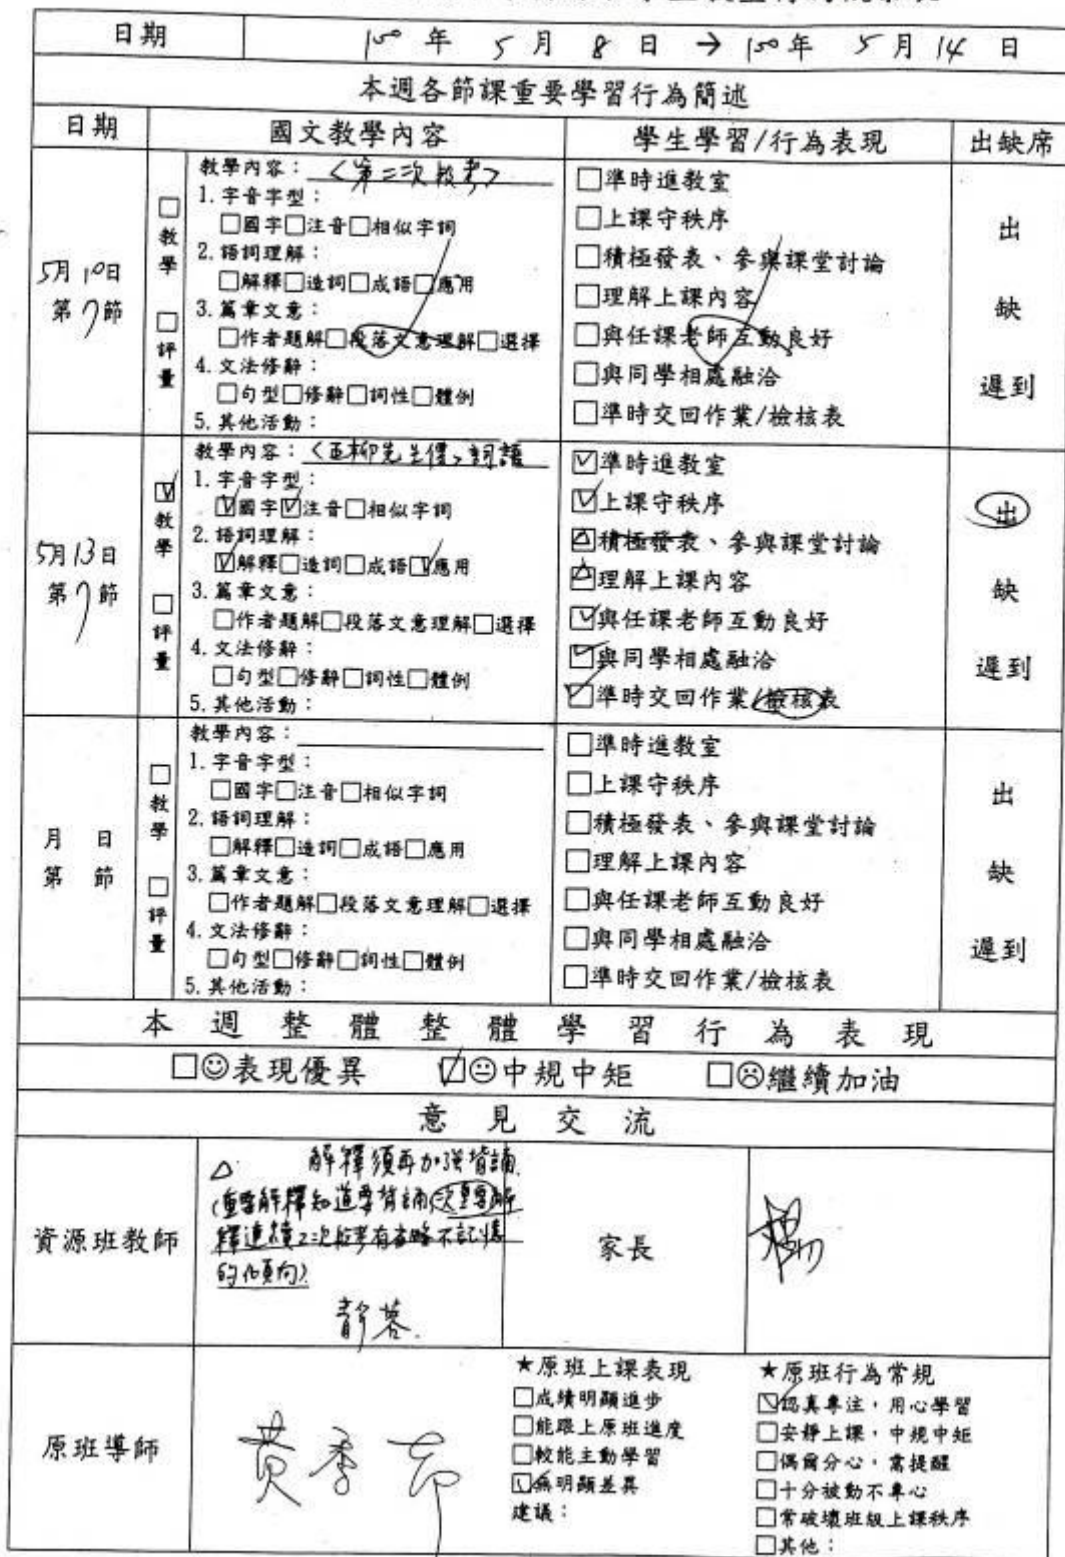 日期 100 年 5 月 8 日 → 100 年 5 月 14 日
本週各節課重要學習行為簡述
日期 國文教學內容 學生學習/行為表現 出缺席
5月10日
第7節
□教學 □評量
教學內容：＜第二次段考＞
1.字音字型：
□國字□注音□相似字詞
2.語詞理解：
□解釋□造詞□成語□應用
3.篇章文意：
□作者題解□段落文意理解□選擇
4.文法修辭：
□句型□修辭□詞性□體例
5.其他活動：
□準時進教室
□上課守秩序
□積極發表、參與課堂討論
□理解上課內容
□與任課老師互動良好
□與同學相處融洽
□準時交回作業/檢核表
出
缺
遲到
5月13日
第7節
☑教學 □評量
教學內容：＜五柳先生傳＞詞語
1.字音字型：
☑國字☑注音□相似字詞
2.語詞理解：
☑解釋□造詞□成語☑應用
3.篇章文意：
□作者題解□段落文意理解□選擇
4.文法修辭：
□句型□修辭□詞性□體例
5.其他活動：
☑準時進教室
☑上課守秩序
△積極發表、參與課堂討論
△理解上課內容
☑與任課老師互動良好
☑與同學相處融洽
☑準時交回作業/檢核表
出
缺
遲到
月 日
第 節
□教學 □評量
教學內容：
1.字音字型：
□國字□注音□相似字詞
2.語詞理解：
□解釋□造詞□成語□應用
3.篇章文意：
□作者題解□段落文意理解□選擇
4.文法修辭：
□句型□修辭□詞性□體例
5.其他活動：
□準時進教室
□上課守秩序
□積極發表、參與課堂討論
□理解上課內容
□與任課老師互動良好
□與同學相處融洽
□準時交回作業/檢核表
出
缺
遲到
本週整體整體學習行為表現
□☺表現優異 ☑😐中規中矩 □☹繼續加油
意見交流
資源班教師
△ 解釋須再加強背誦
(重要解釋知道要背誦,次重要解
釋連續2次段考有省略不記憶
的傾向)
家長
原班導師
黃季
★原班上課表現
□成績明顯進步
□能跟上原班進度
□較能主動學習
☑無明顯差異
建議：
★原班行為常規
☑認真專注，用心學習
□安靜上課，中規中矩
□偶爾分心，需提醒
□十分被動不專心
□常破壞班級上課秩序
□其他：